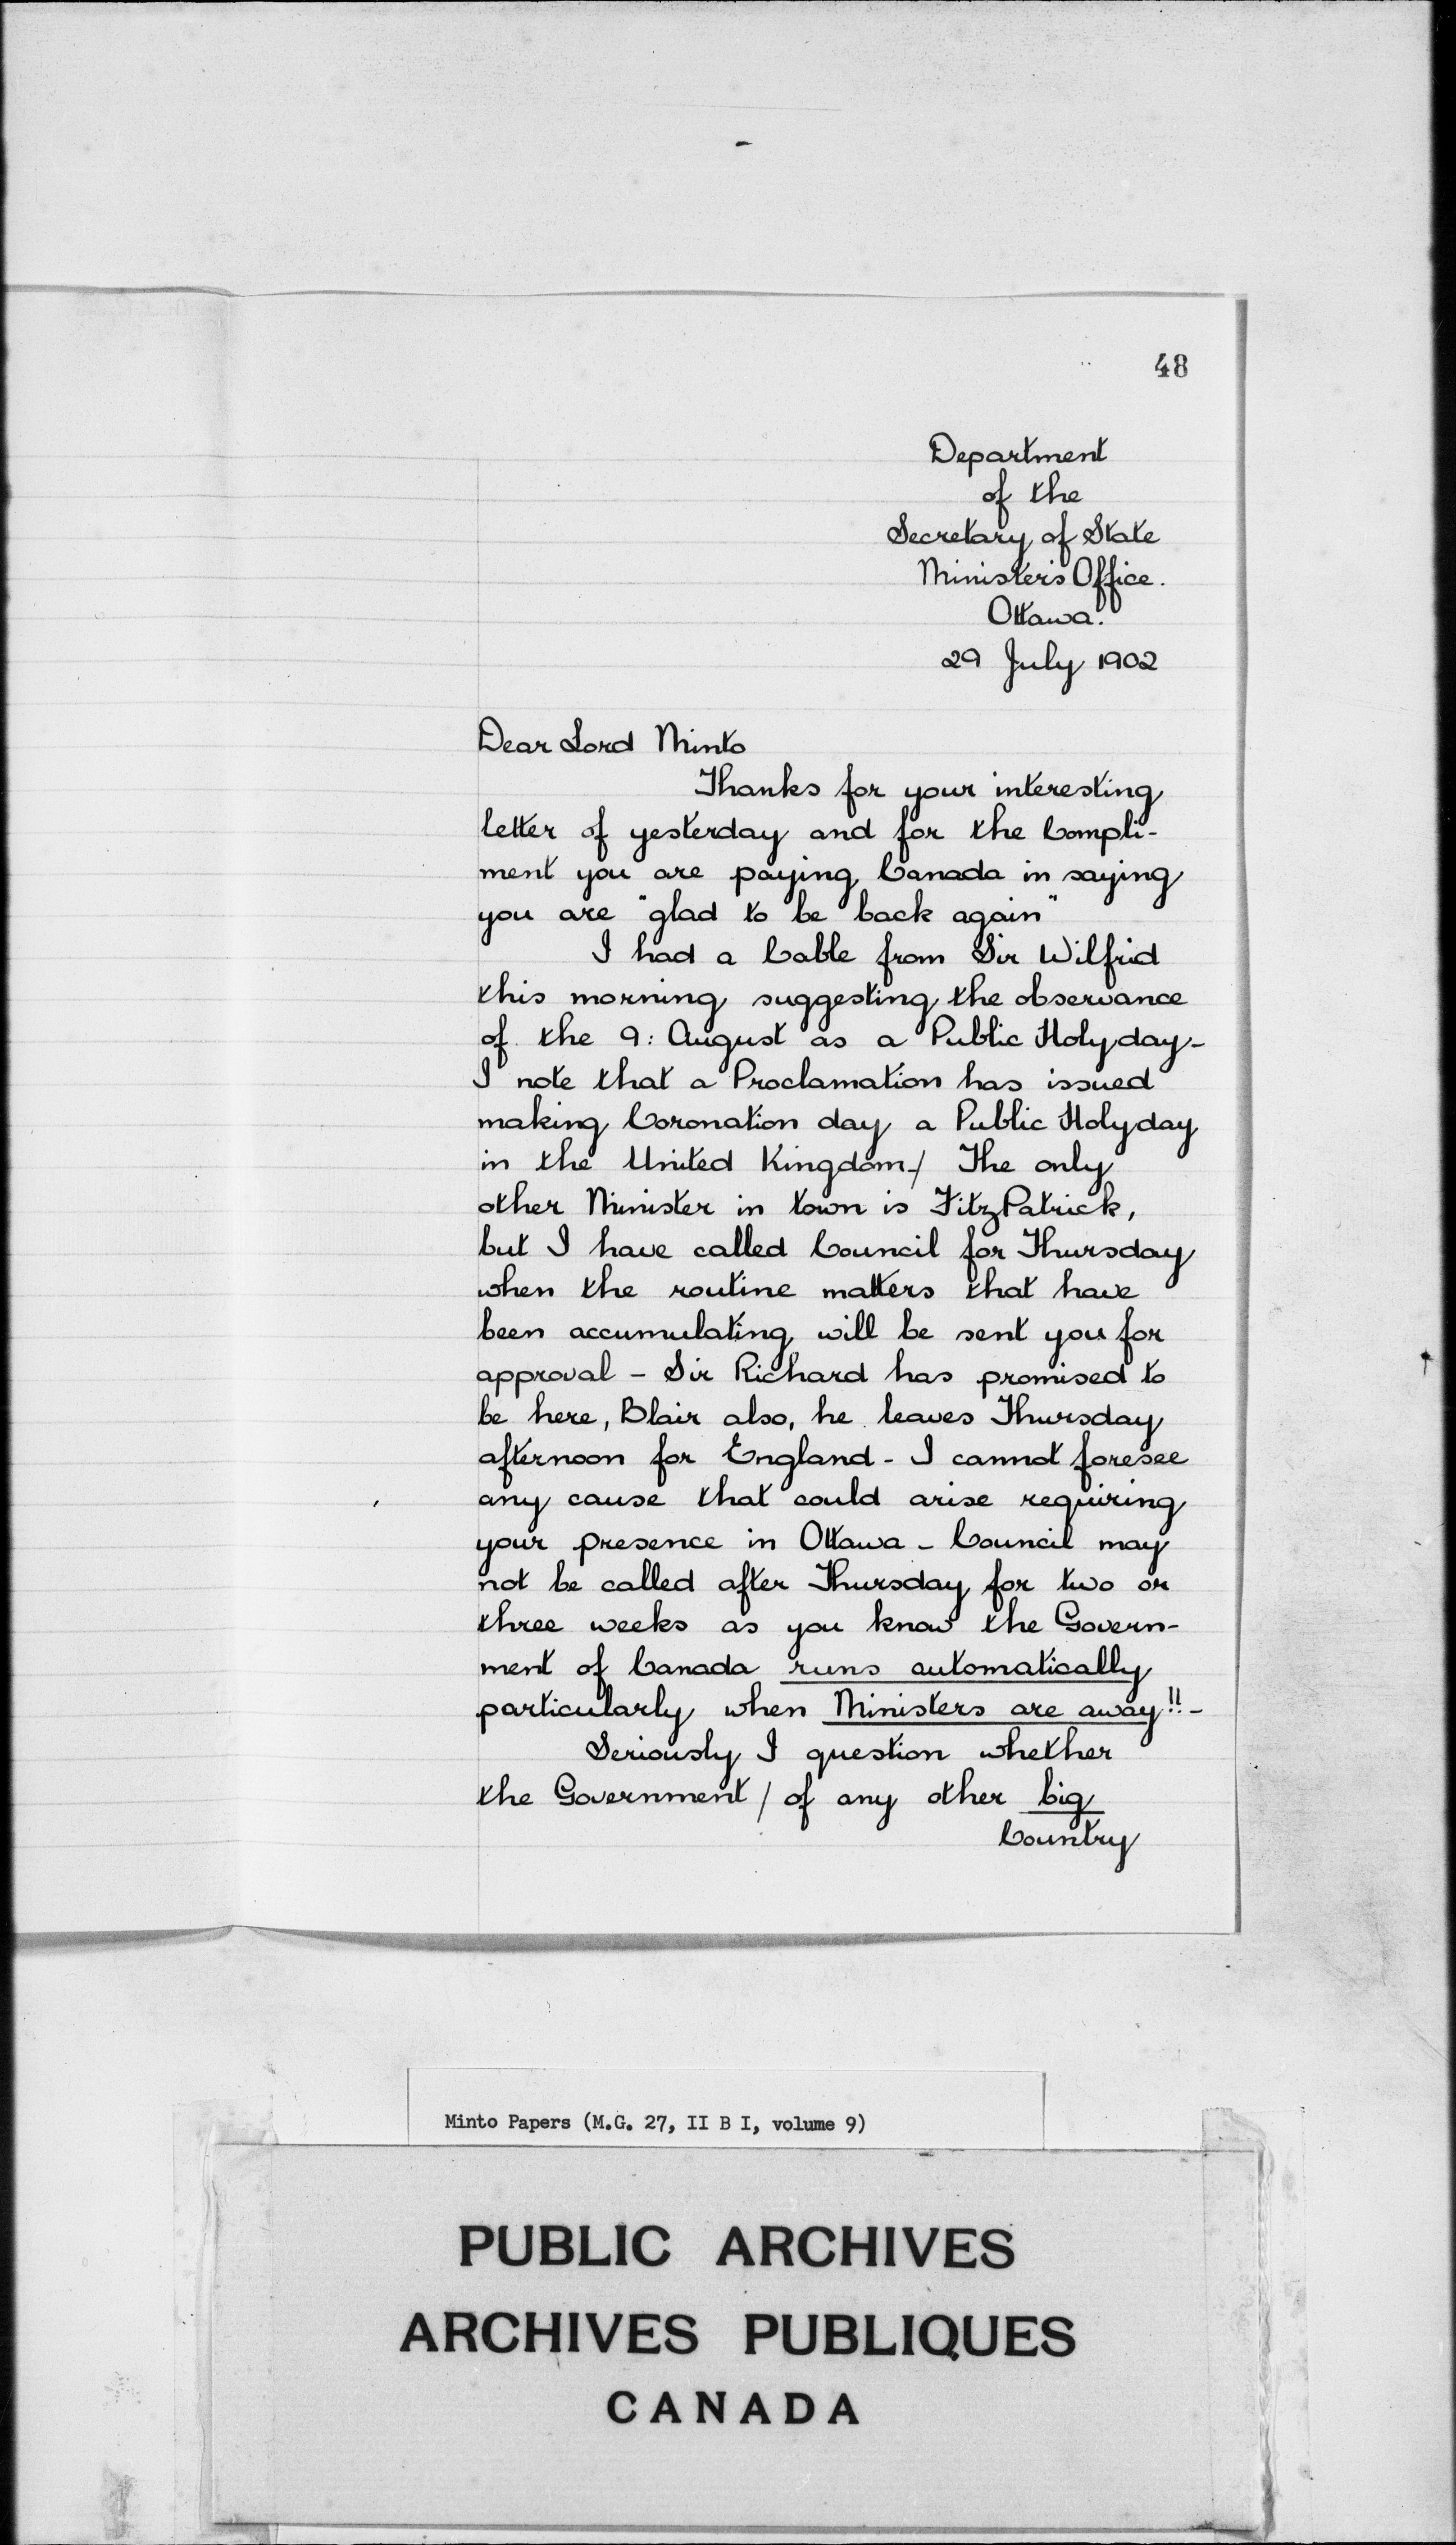 48
Department
of the
Secretary of State
Minister's Office.
Ottawa.
29 July 1902
Dear Lord Minto
Thanks for your interesting
letter of yesterday and for the Compli-
ment you are paying Canada in saying
you are "glad to be back again"
I had a Cable from Sir Wilfrid
this morning suggesting the observance
of the 9: August as a Public Holyday-
I note that a Proclamation has issued
making Coronation day a Public Holyday
in the United Kingdom-/ The only
other Minister in town is FitzPatrick,
but I have called Council for Thursday
when the routine matters that have
been accumulating will be sent you for
approval - Sir Richard has promised to
be here, Blair also, he leaves Thursday
afternoon for England - I cannot foresee
any cause that could arise requiring
your presence in Ottawa - Council may
not be called after Thursday for two or
three weeks as you know the Govern-
ment of Canada runs automatically
particularly when Ministers are away!!-
Seriously I question whether
the Government / of any other big
Country
Minto Papers (M.G. 27, II B I, volume 9)
PUBLIC ARCHIVES
ARCHIVES PUBLIQUES
CANADA